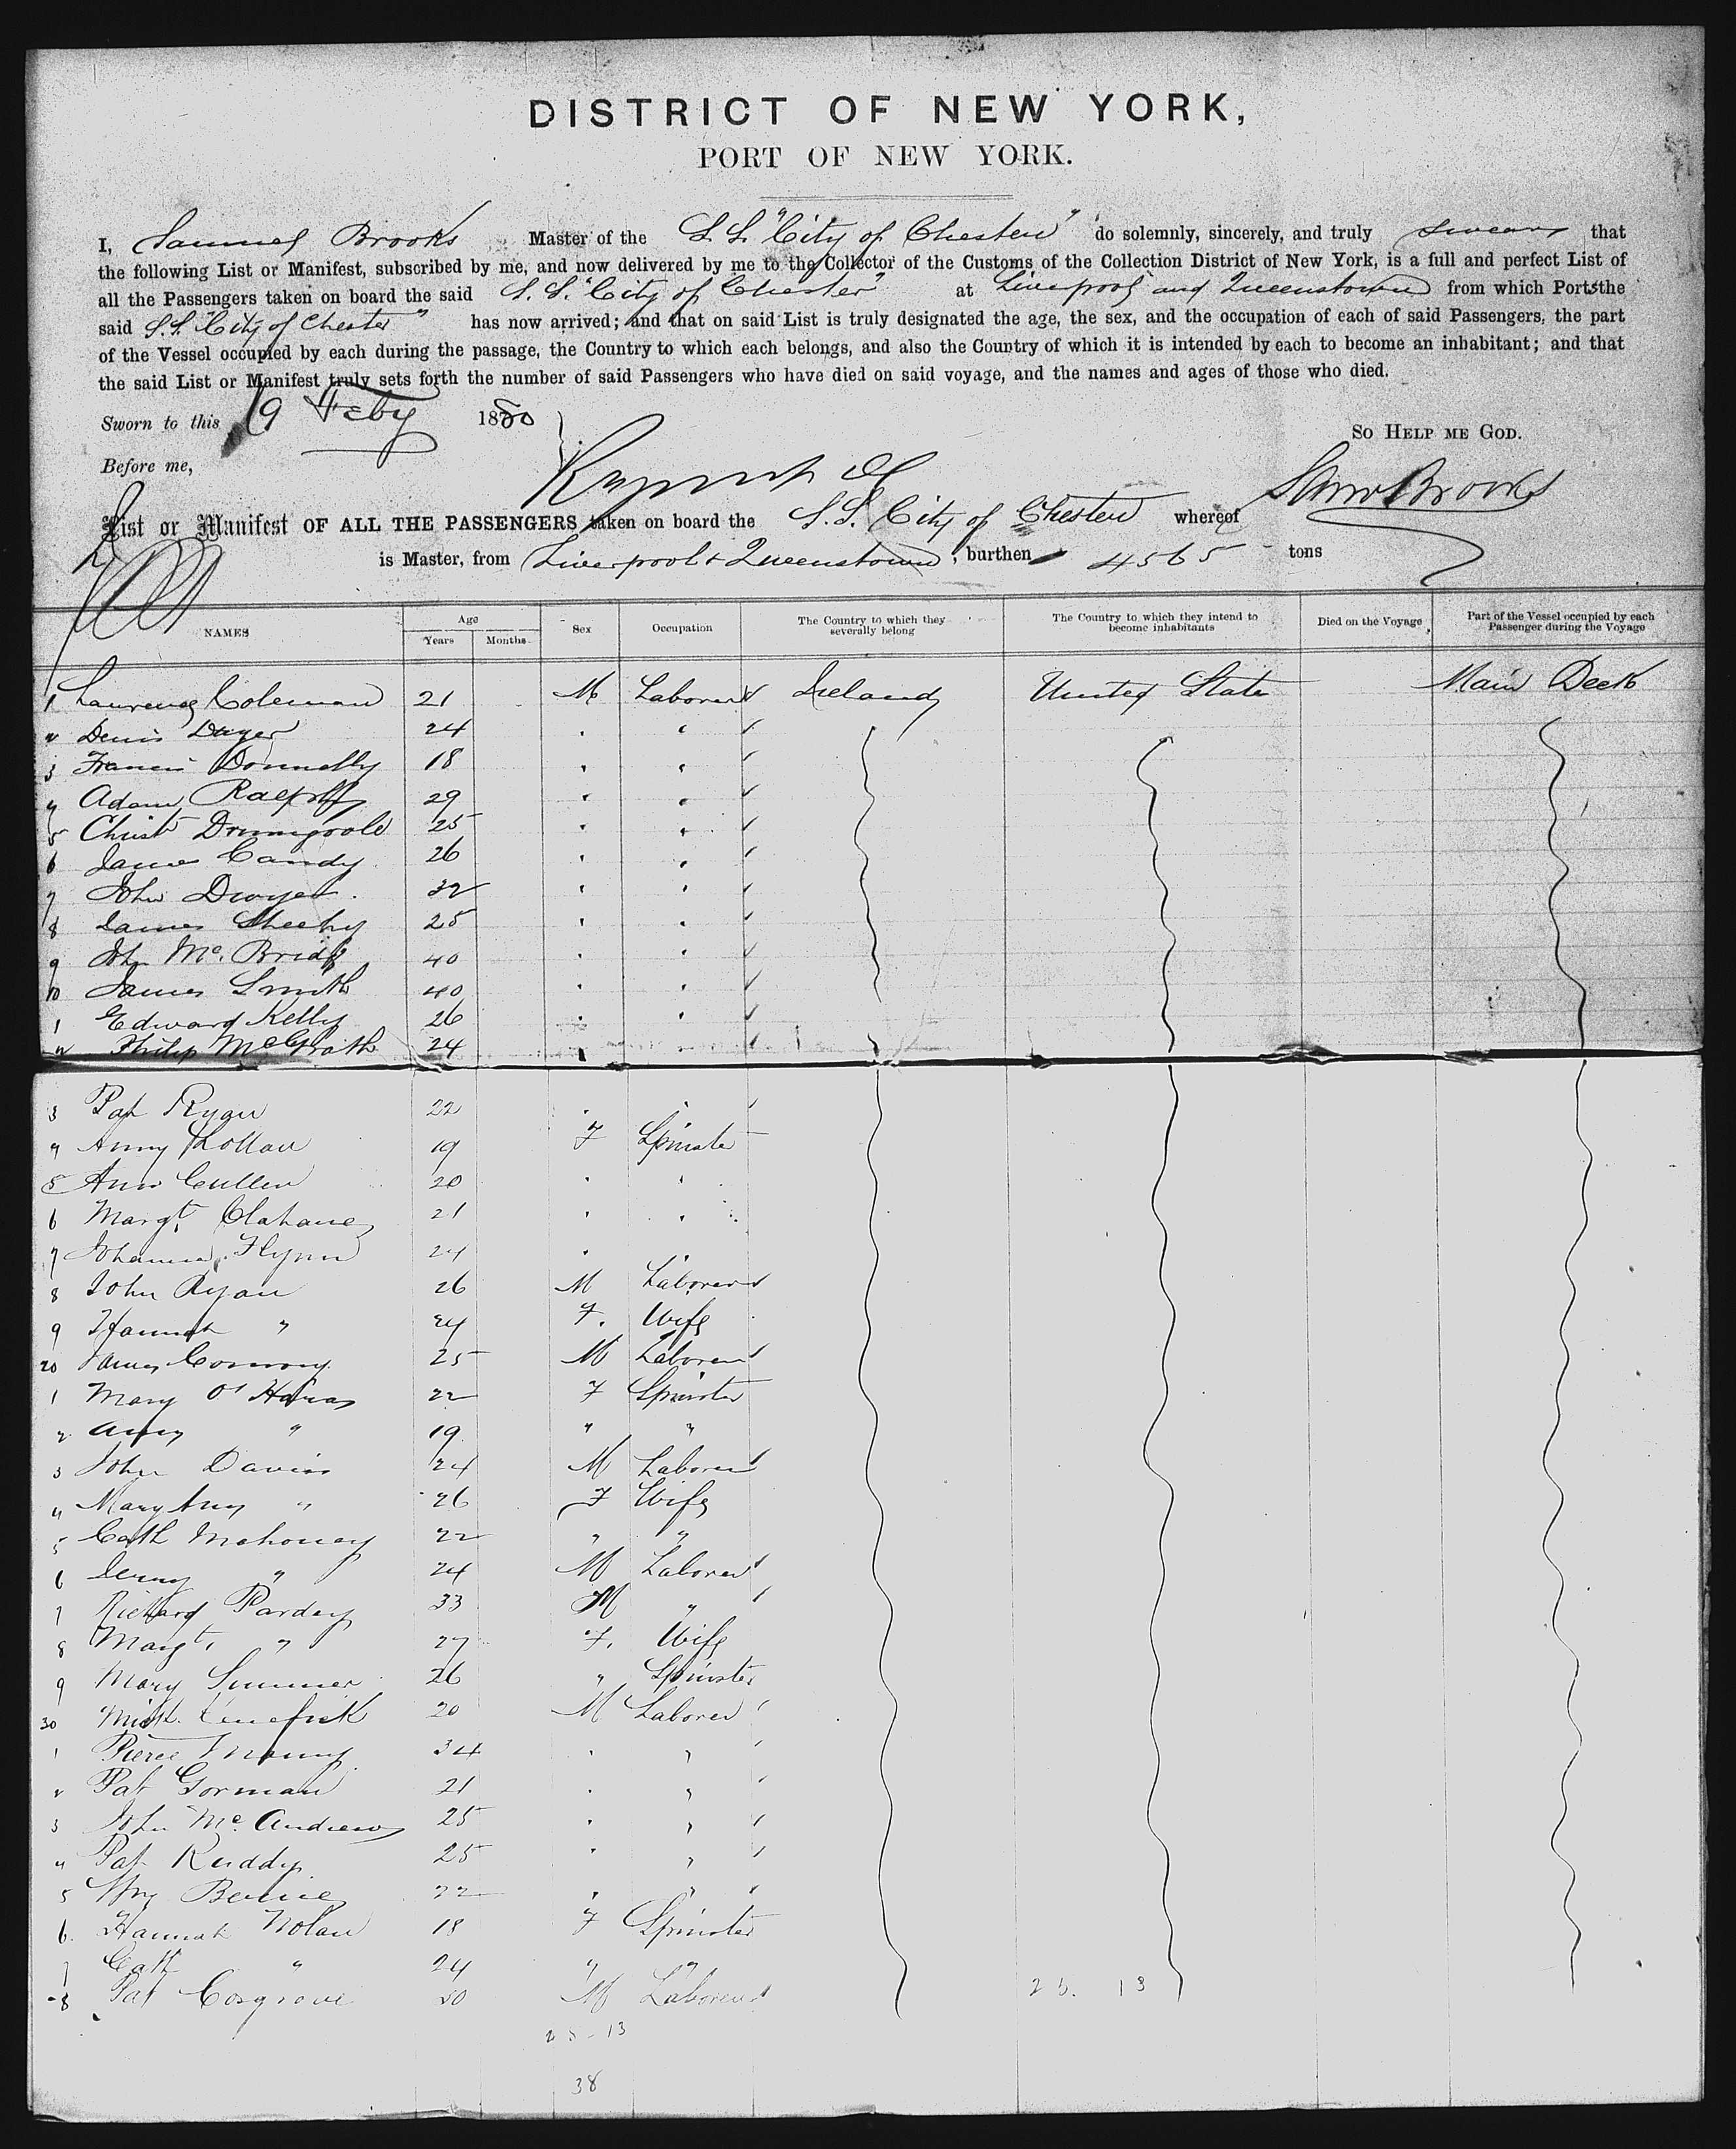 DISTRICT OF NEW YORK,
PORT OF NEW YORK.
I, Samuel Brooks Master of the S.S. "City of Chester" do solemnly, sincerely, and truly swear that
the following List or Manifest, subscribed by me, and now delivered by me to the Collector of the Customs of the Collection District of New York, is a full and perfect List of
all the Passengers taken on board the said S.S. "City of Chester" at Liverpool and Queenstown from which Ports the
said S.S. "City of Chester" has now arrived; and that on said List is truly designated the age, the sex, and the occupation of each of said Passengers, the part
of the Vessel occupied by each during the passage, the Country to which each belongs, and also the Country of which it is intended by each to become an inhabitant; and that
the said List or Manifest truly sets forth the number of said Passengers who have died on said voyage, and the names and ages of those who died.
Sworn to this 19 Feby 1880
So Help me God.
Before me,
Saml Brooks
List or Manifest OF ALL THE PASSENGERS taken on board the S.S. City of Chester whereof
is Master, from Liverpool & Queenstown, burthen 4565 tons
NAMES Age Years Months Sex Occupation The Country to which they severally belong The Country to which they intend to become inhabitants Died on the Voyage Part of the Vessel occupied by each Passenger during the Voyage
1 Laurence Coleman 21 M Laborer Ireland United State Main Deck
2 Denis Dwyer 24
3 Francis Donnelly 18
4 Adam 29
5 Christ Drumgoole 25
6 James Candy 26
7 John Dwyer 32
8 James Sheehy 25
9 John Mc. Bride 40
10 James Smith 40
1 Edward Kelly 26
2 Philip McGrath 24
3 Pat Ryan 22
4 Anny 19 F Spinster
5 Ann Cullen 20
6 Margt. Clahane 21
7 Johanna Flynn 24
8 John Ryan 26 M Laborer
9 Hannah " 24 F. Wife
20 James Conroy 25 M Laborer
1 Mary O'Hara 22 F Spinster
2 Anny " 19 " "
3 John Davis 24 M Laborer
4 Mary Ann " 26 F Wife
5 Cath Mahoney 22 " "
6 Jerry " 24 M Laborer
7 Richard Pardey 33 M "
8 Margt. " 27 F. Wife
9 Mary Summer 26 " Spinster
30 Mich. Kenefick 20 M Laborer
1 Pierce 34 "
2 Pat Gorman 21 "
3 John Mc. Andrew 25 "
4 Pat Ruddy 25 "
5 Wm 22 "
6. Hannah Nolan 18 F Spinster
7 Cath " 24 " "
8 Pat Cosgrove 30 M Laborer
25. 13
25 - 13
38